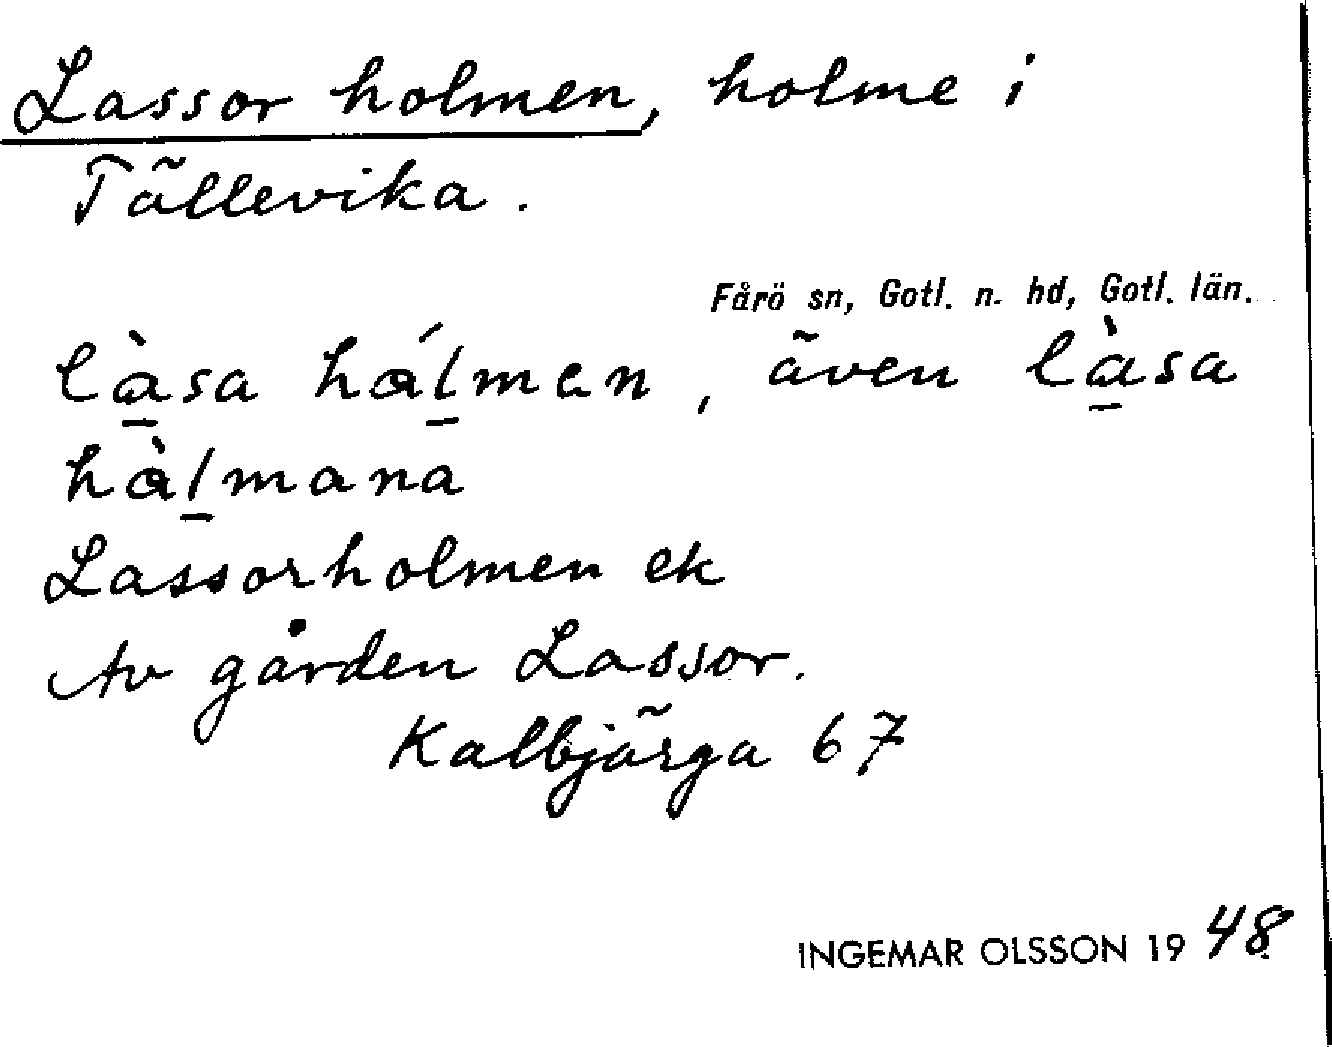 Lassor holmen, holme i
Tällevika.
Fårö sn, Gotl. n. hd, Gotl. län.
là̱sa háḻmen, även là̱sa
hàḻmana
Lassorholmen ek
Av gården Lassor.
Kalbjärga 67
INGEMAR OLSSON 1948